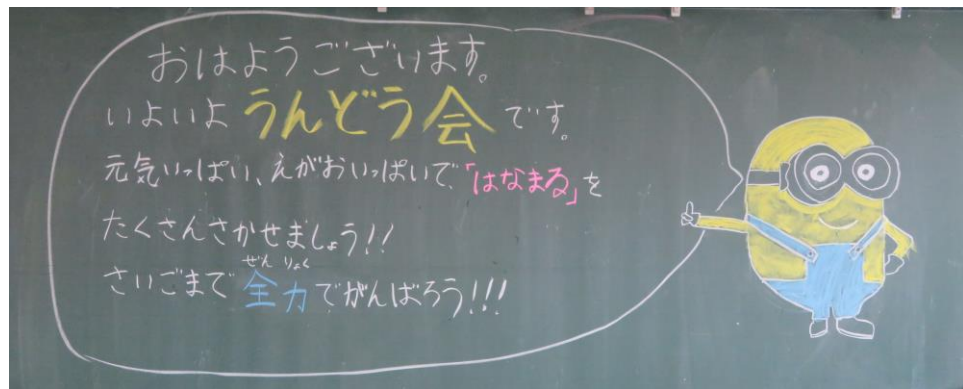 おはようございます。
いよいようんどう会です。
元気いっぱい、えがおいっぱいで「はなまる」を
たくさんさかせましょう!!
ぜんりょく
さいごまで全力でがんばろう!!!